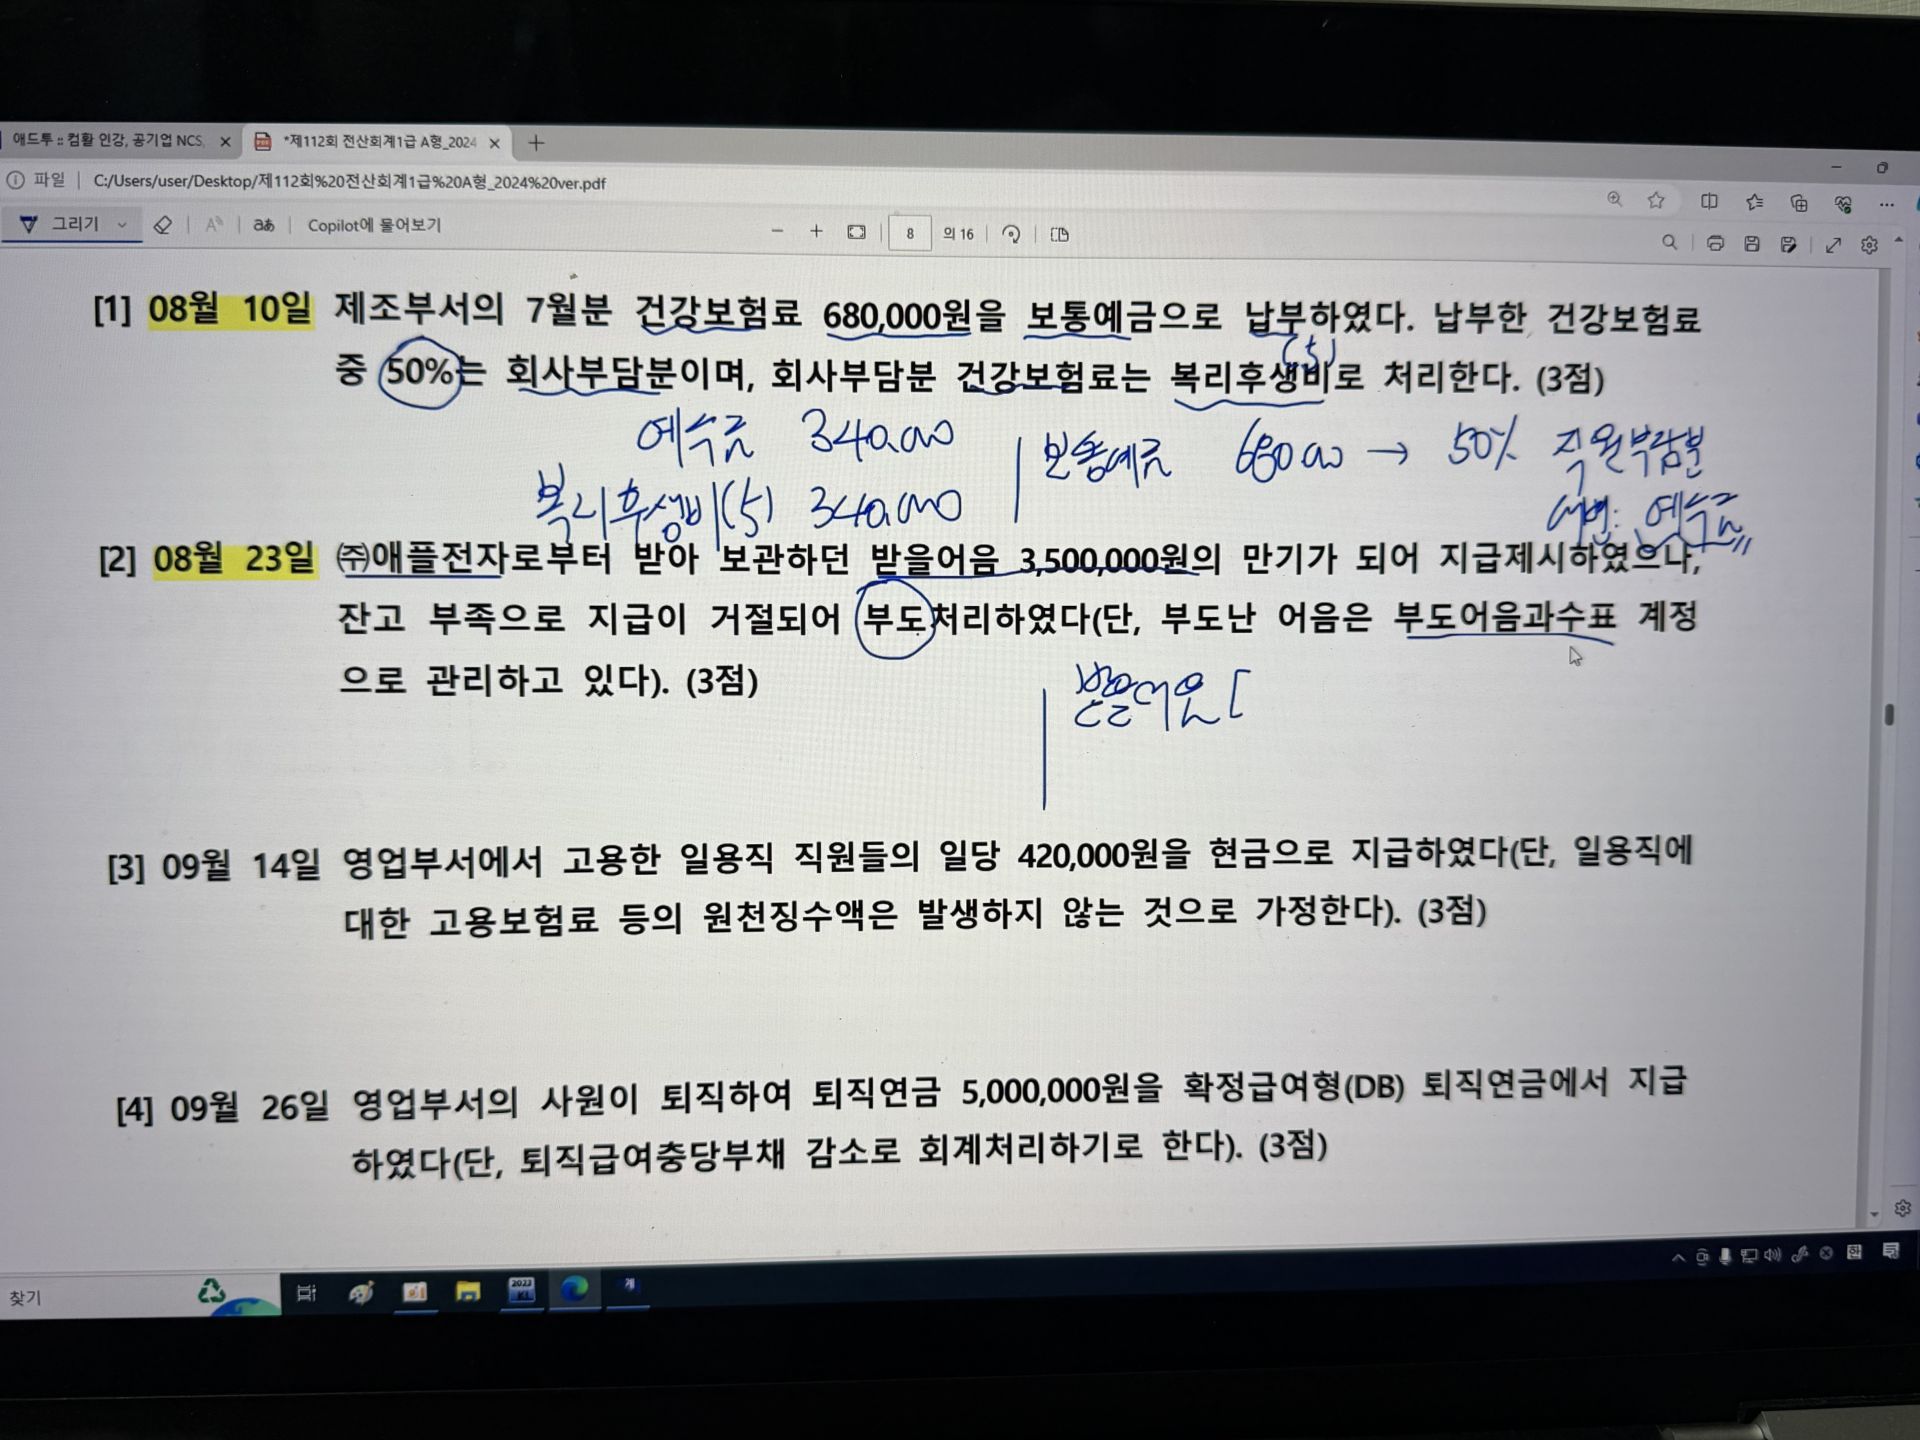 애드투 :: 컴활 인강, 공기업 NCS, × *제112회 전산회계1급 A형_2024 × +
파일 C:/Users/user/Desktop/제112회%20전산회계1급%20A형_2024%20ver.pdf
그리기 aあ Copilot에 물어보기 − + 8 의 16
[1] 08월 10일 제조부서의 7월분 건강보험료 680,000원을 보통예금으로 납부하였다. 납부한 건강보험료
(5)
중 50%는 회사부담분이며, 회사부담분 건강보험료는 복리후생비로 처리한다. (3점)
예수금 340,000 보통예금 680,000 → 50% 직원부담분
복리후생비(5) 340,000 예수금
[2] 08월 23일 ㈜애플전자로부터 받아 보관하던 받을어음 3,500,000원의 만기가 되어 지급제시하였으나,
잔고 부족으로 지급이 거절되어 부도처리하였다(단, 부도난 어음은 부도어음과수표 계정
으로 관리하고 있다). (3점)
받을어음 [
[3] 09월 14일 영업부서에서 고용한 일용직 직원들의 일당 420,000원을 현금으로 지급하였다(단, 일용직에
대한 고용보험료 등의 원천징수액은 발생하지 않는 것으로 가정한다). (3점)
[4] 09월 26일 영업부서의 사원이 퇴직하여 퇴직연금 5,000,000원을 확정급여형(DB) 퇴직연금에서 지급
하였다(단, 퇴직급여충당부채 감소로 회계처리하기로 한다). (3점)
찾기 2023 계 한